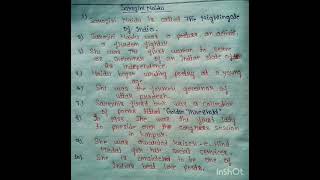 Sarojini Naidu
1) Sarojini Naidu is called The Nightingale
of India.
2) Sarojini Naidu was a partison an activist
a freedom fighter
3) She was the first woman to serve
as Governor of an Indian state after
its independence.
4) Naidu began writing poetry at a young
age.
5) She was the former governor of
Uttar Pradesh
6) Sarojini's first book was a collection
of poems titled "Golden Threshold"
7) In 1925 She was the first lady
to preside over the congress session
in Kanpur.
8) She was awarded Kaiser-e-Hind
Medal for her social services
10) She is considered to be one of
India's best love poets.
InShOt